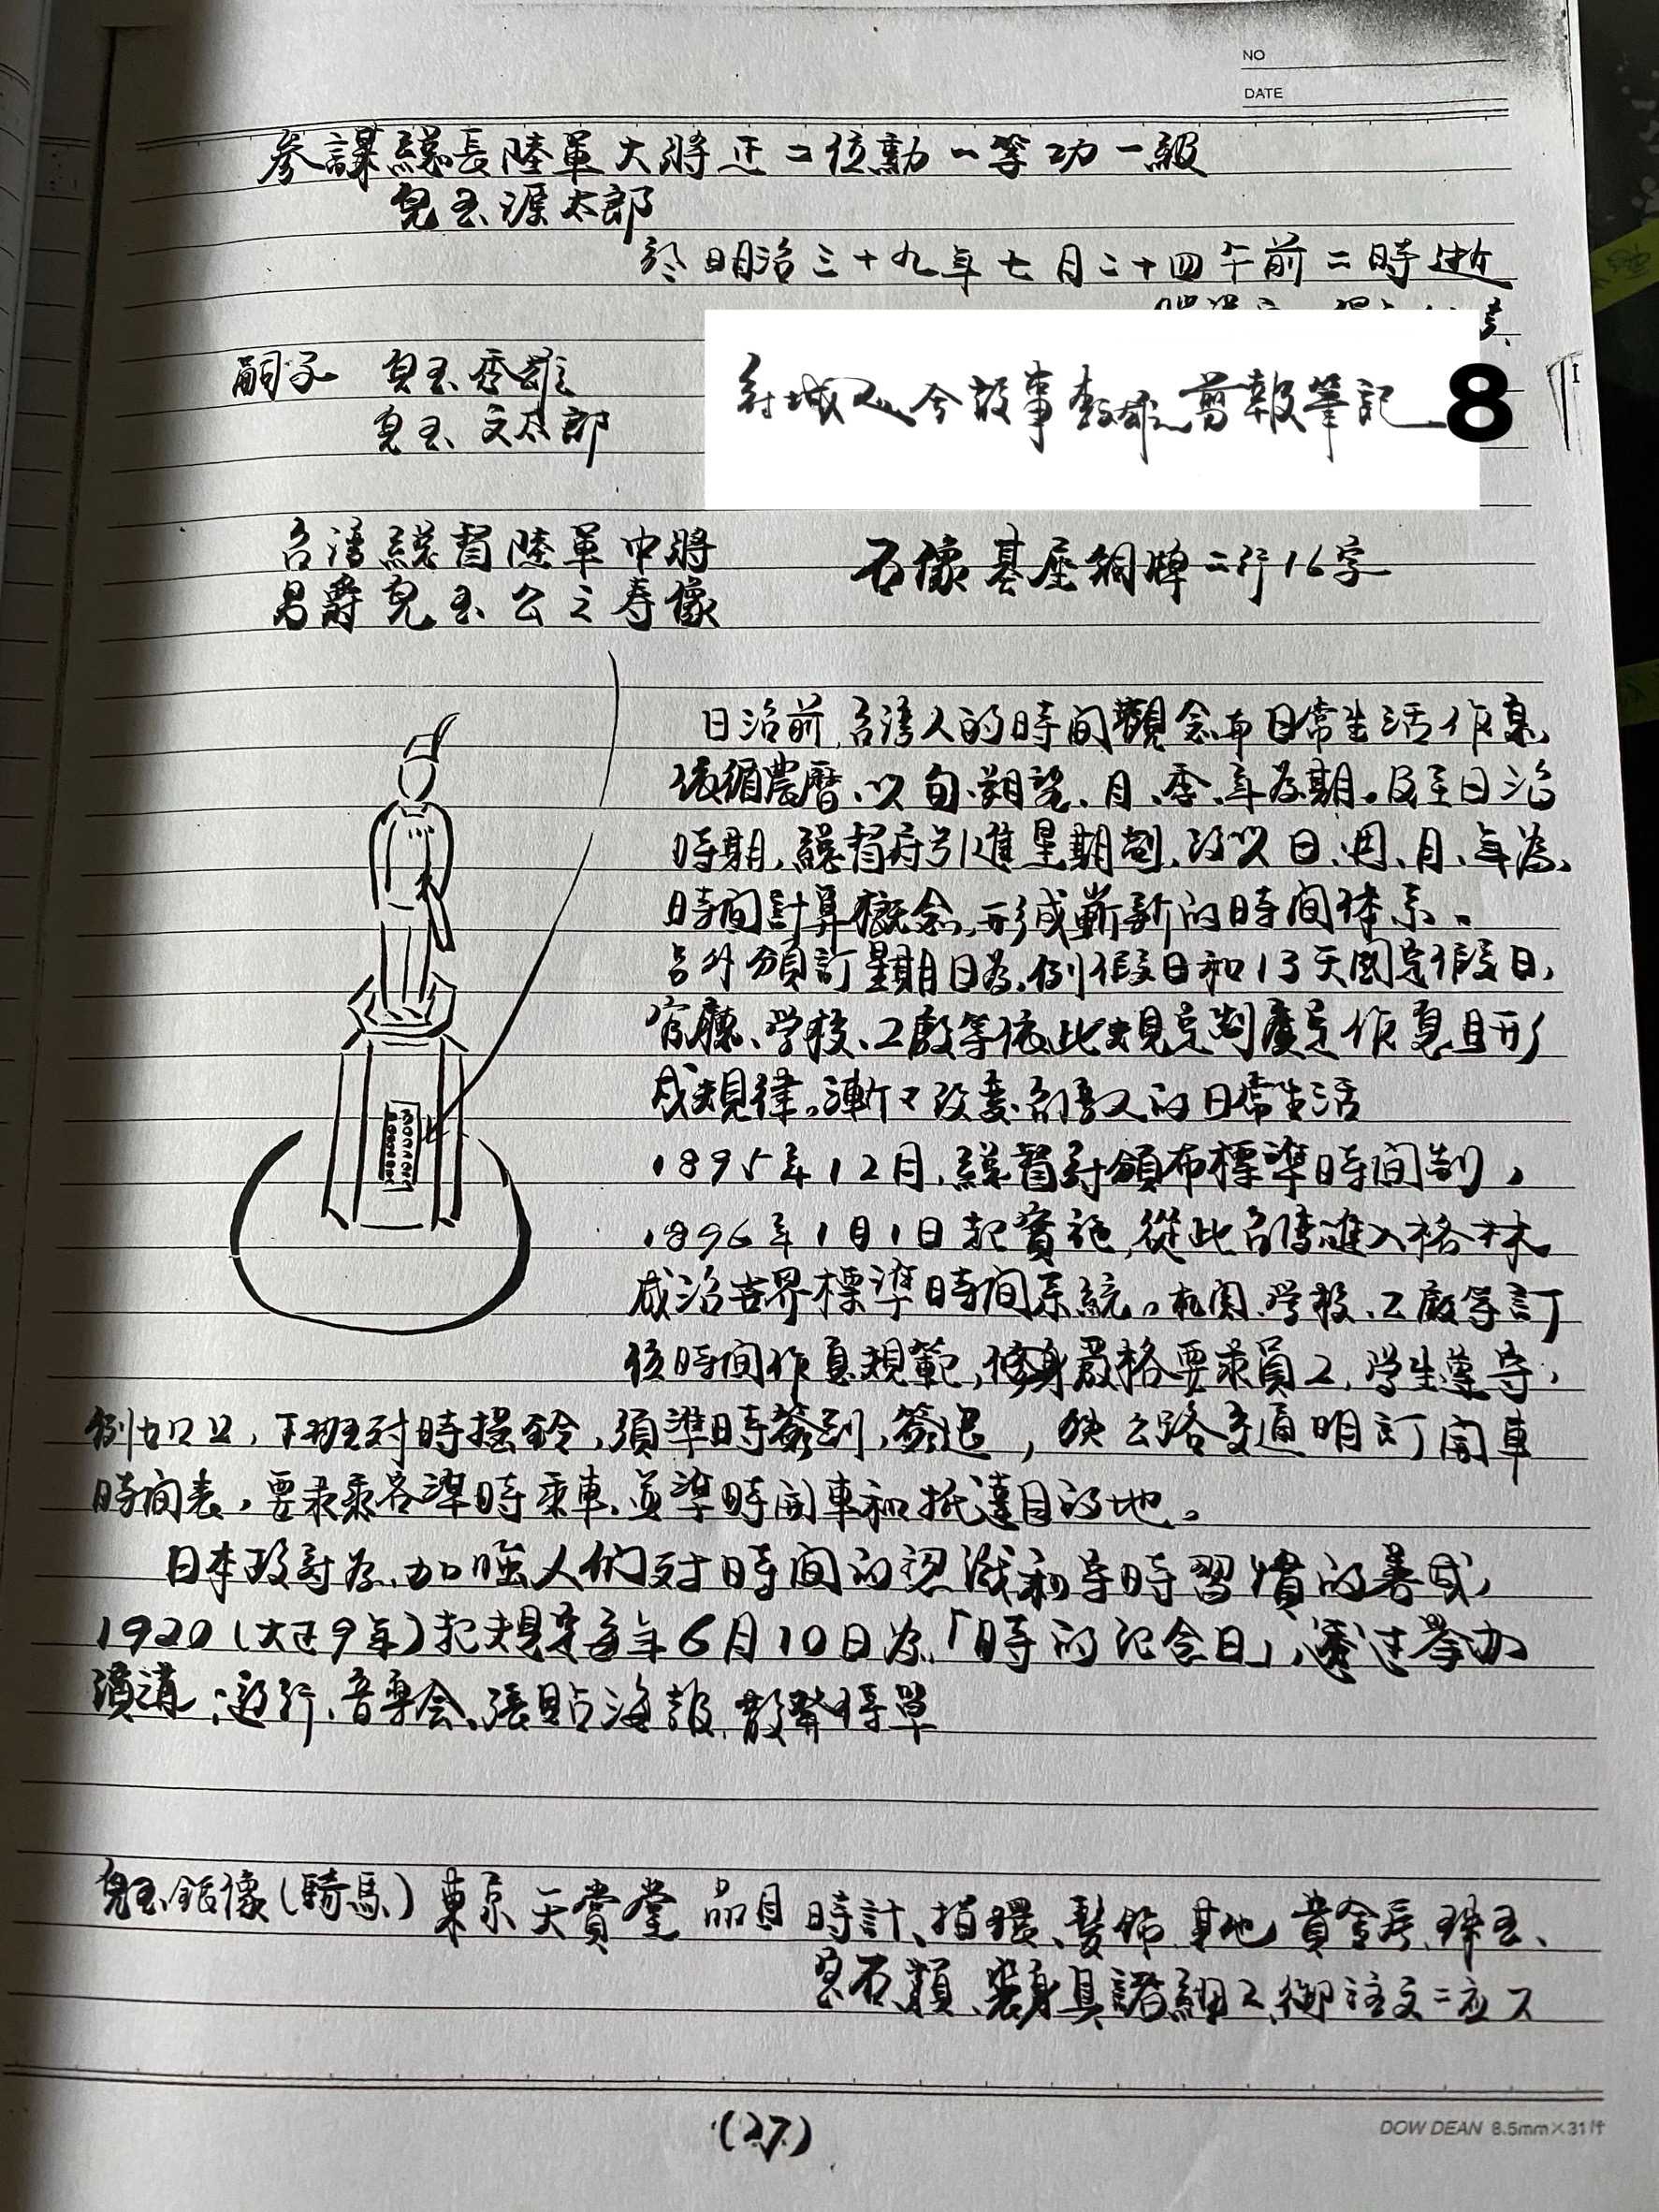 NO
DATE
參謀總長陸軍大將正二位勳一等功一級
兒玉源太郎
於明治三十九年七月二十四午前二時逝
嗣子 兒玉秀雄
兒玉文太郎
府城 今故事 剪報筆記 8
台湾總督陸軍中將
男爵兒玉公之寿像
石像基座銅牌二行16字
日治前,台湾人的時間觀念与日常生活作息,
依循農曆、以旬、朔望、月、季、年為期。及至日治
時期,總督府引進星期制,改以日、週、月、年為
時間計算概念,形成嶄新的時間体系。
另外頒訂星期日為例假日和13天國定假日,
官廳、学校、工廠等依此規定制度作息且形
成規律。漸々改变台湾人的日常生活
1895年12月,總督府頒布標準時間制,
1896年1月1日起實施,從此台湾進入格林
威治世界標準時間系統。机関、学校、工廠等訂
後時間作息規範,嚴格要求員工、学生遵守,
例如上、下班对時搖鈴,須準時簽到、簽退, 鉄公路交通明訂開車
時間表,要求乘客準時乘車,並準時開車和抵達目的地。
日本政府為加强人們对時間的認識和守時習慣的養成,
1920(大正9年)起規定每年6月10日為「時的記念日」,透過举办
演講、遊行、音樂会、張貼海報,散發傳單
兒玉銅像(騎馬) 東京天賞堂 品目 時計、指環、髮飾 其他 貴金属、珠玉、
宝石類、装身具諸細工、御注文二応ス
(27)
DOW DEAN 8.5mm×31行